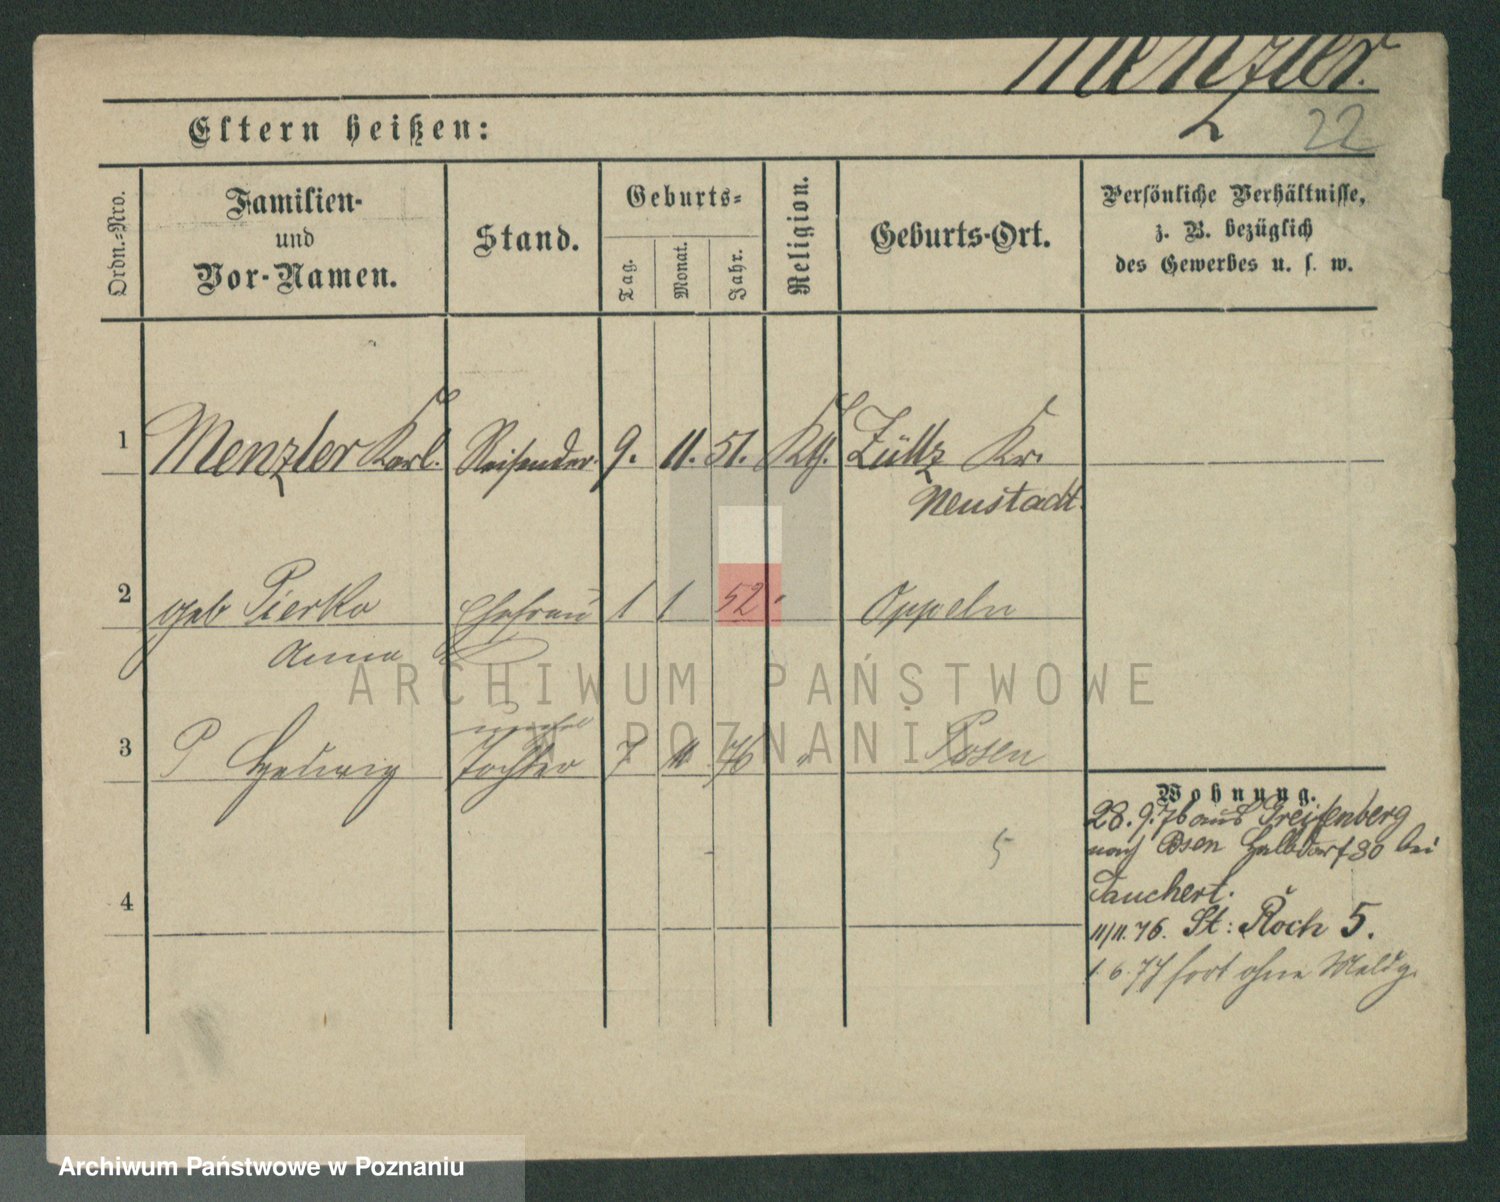 Menzler.
22
Eltern heißen:
Ordn.-Nro.
Familien-
und
Vor-Namen.
Stand.
Geburts-
Tag.
Monat.
Jahr.
Religion.
Geburts-Ort.
Persönliche Verhältnisse,
z. B. bezüglich
des Gewerbes u. s. w.
1 Menzler Karl. Reisender. 9. 11. 51. Kth. Zültz Kr.
Neustadt.
2 geb Pierka Ehefrau 1 1 52 " Oppeln
Anna
3 Hedwig Tochter 7 11 76 " Posen
4
5
Wohnung.
28.9.76 aus Greifenberg
nach Posen Halbdorf 30 bei
Tauchert.
11/11.76. St: Roch 5.
1.6.77 fort ohne Meldg.
ARCHIWUM PAŃSTWOWE
W POZNANIU
Archiwum Państwowe w Poznaniu